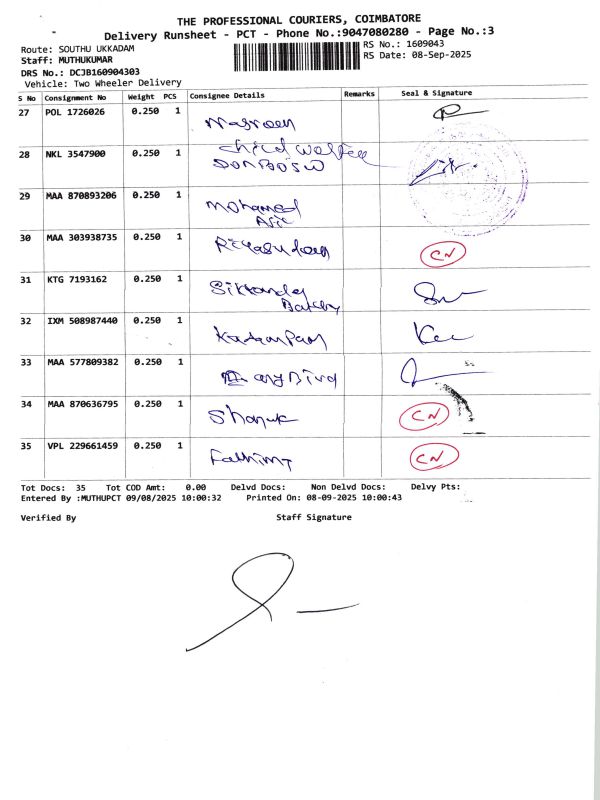 THE PROFESSIONAL COURIERS, COIMBATORE
Delivery Runsheet - PCT - Phone No.:9047080280 - Page No.:3
Route: SOUTHU UKKADAM
RS No.: 1609043
Staff: MUTHUKUMAR
RS Date: 08-Sep-2025
DRS No.: DCJB160904303
Vehicle: Two Wheeler Delivery
S No Consignment No Weight PCS Consignee Details Remarks Seal & Signature
27 POL 1726026 0.250 1
28 NKL 3547900 0.250 1 child welfee
DONBOSCO
29 MAA 870893206 0.250 1 Mohamed
30 MAA 303938735 0.250 1 CN
31 KTG 7193162 0.250 1
32 IXM 508987440 0.250 1
33 MAA 577809382 0.250 1
34 MAA 870636795 0.250 1 CN
35 VPL 229661459 0.250 1 CN
Tot Docs: 35 Tot COD Amt: 0.00 Delvd Docs: Non Delvd Docs: Delvy Pts:
Entered By :MUTHUPCT 09/08/2025 10:00:32 Printed On: 08-09-2025 10:00:43
Verified By Staff Signature